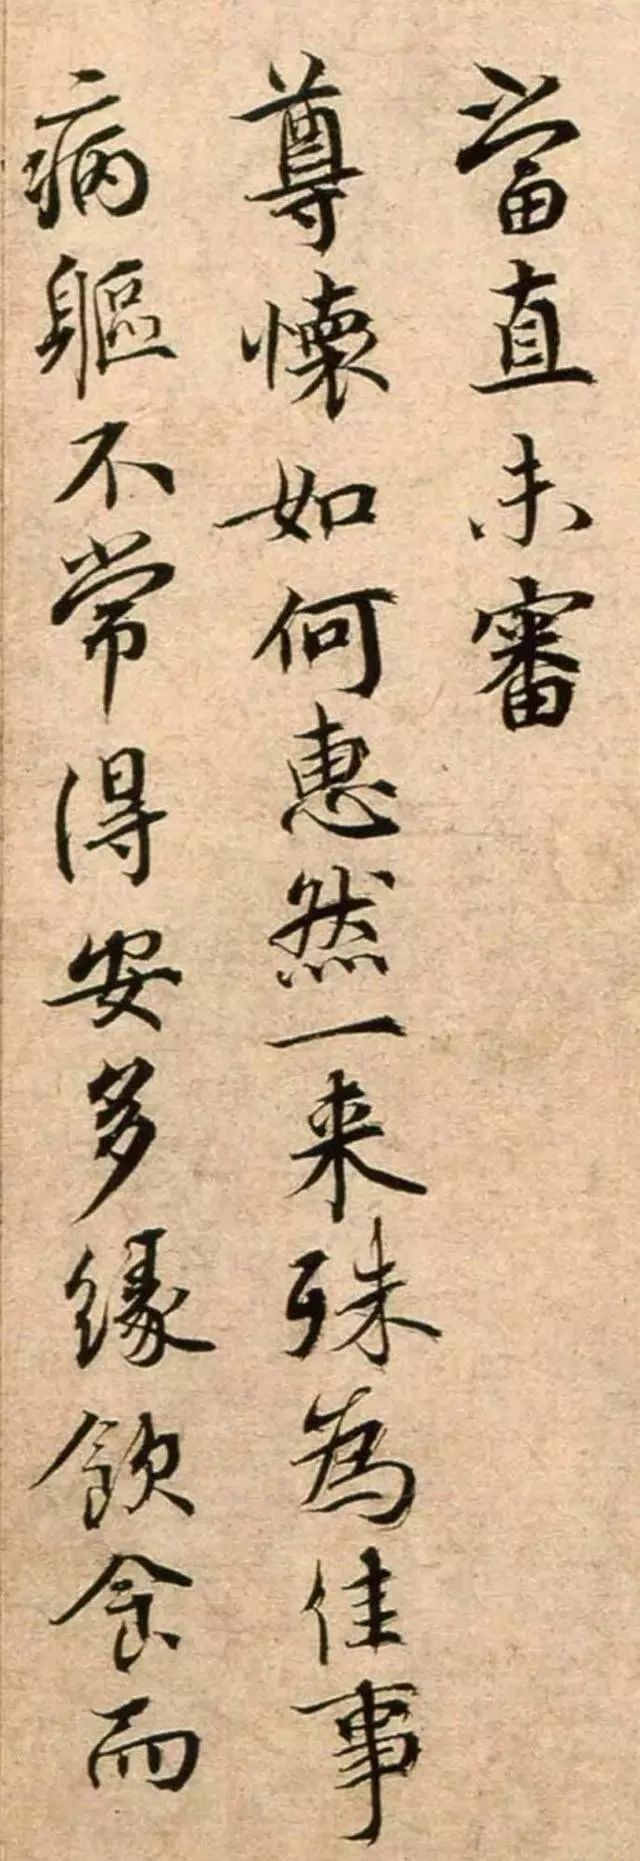 當直未審
尊懷如何惠然一来殊為佳事
病軀不常得安多緣飲食而